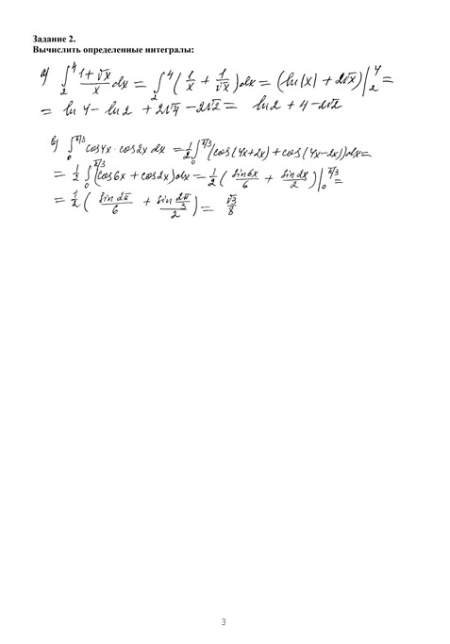 Задание 2.
Вычислить определенные интегралы:
а) ∫₂⁴ (1+√x)/x dx = ∫₂⁴ (1/x + 1/√x)dx = (ln|x| + 2√x)|₂⁴ =
= ln 4 - ln 2 + 2√4 - 2√2 = ln 2 + 4 - 2√2
б) ∫₀^(π/3) cos4x · cos2x dx = 1/2 ∫₀^(π/3) (cos(4x+2x) + cos(4x-2x))dx =
= 1/2 ∫₀^(π/3) (cos6x + cos2x)dx = 1/2 (sin6x/6 + sin2x/2)|₀^(π/3) =
= 1/2 (sin2π/6 + sin(2π/3)/2) = √3/8
3